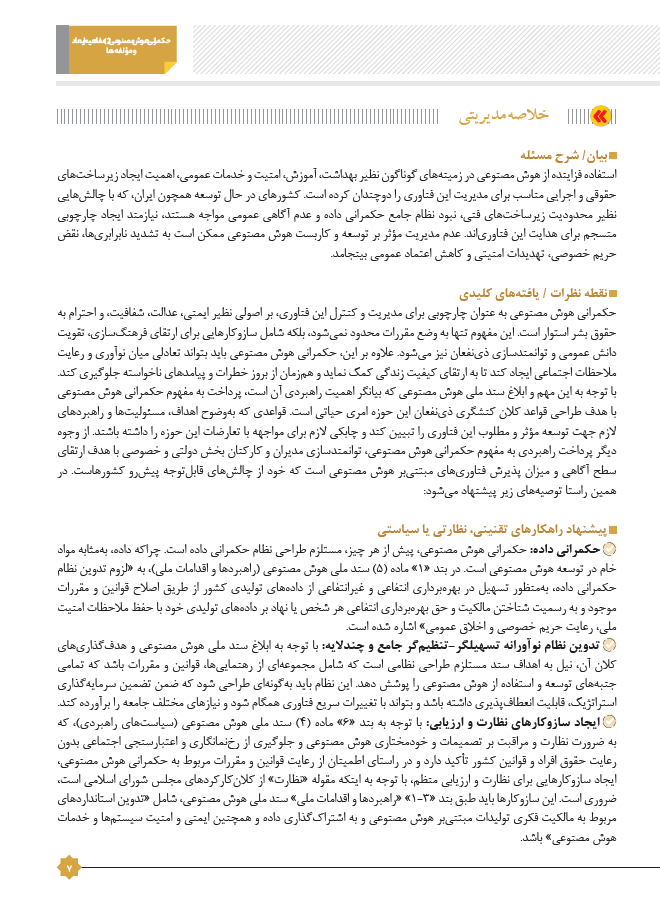 حکمرانی هوش مصنوعی (2): مفاهیم، ابعاد
و مؤلفه‌ها
خلاصه مدیریتی
بیان/ شرح مسئله
استفاده فزاینده از هوش مصنوعی در زمینه‌های گوناگون نظیر بهداشت، آموزش، امنیت و خدمات عمومی، اهمیت ایجاد زیرساخت‌های
حقوقی و اجرایی مناسب برای مدیریت این فناوری را دوچندان کرده است. کشورهای در حال توسعه همچون ایران، که با چالش‌هایی
نظیر محدودیت زیرساخت‌های فنی، نبود نظام جامع حکمرانی داده و عدم آگاهی عمومی مواجه هستند، نیازمند ایجاد چارچوبی
منسجم برای هدایت این فناوری‌اند. عدم مدیریت مؤثر بر توسعه و کاربست هوش مصنوعی ممکن است به تشدید نابرابری‌ها، نقض
حریم خصوصی، تهدیدات امنیتی و کاهش اعتماد عمومی بینجامد.
نقطه نظرات / یافته‌های کلیدی
حکمرانی هوش مصنوعی به عنوان چارچوبی برای مدیریت و کنترل این فناوری، بر اصولی نظیر ایمنی، عدالت، شفافیت، و احترام به
حقوق بشر استوار است. این مفهوم تنها به وضع مقررات محدود نمی‌شود، بلکه شامل سازوکارهایی برای ارتقای فرهنگ‌سازی، تقویت
دانش عمومی و توانمندسازی ذی‌نفعان نیز می‌شود. علاوه بر این، حکمرانی هوش مصنوعی باید بتواند تعادلی میان نوآوری و رعایت
ملاحظات اجتماعی ایجاد کند تا به ارتقای کیفیت زندگی کمک نماید و هم‌زمان از بروز خطرات و پیامدهای ناخواسته جلوگیری کند.
با توجه به این مهم و ابلاغ سند ملی هوش مصنوعی که بیانگر اهمیت راهبردی آن است، پرداخت به مفهوم حکمرانی هوش مصنوعی
با هدف طراحی قواعد کلان کنشگری ذی‌نفعان این حوزه امری حیاتی است. قواعدی که به‌وضوح اهداف، مسئولیت‌ها و راهبردهای
لازم جهت توسعه مؤثر و مطلوب این فناوری را تبیین کند و چابکی لازم برای مواجهه با تعارضات این حوزه را داشته باشند. از وجوه
دیگر پرداخت راهبردی به مفهوم حکمرانی هوش مصنوعی، توانمندسازی مدیران و کارکنان بخش دولتی و خصوصی با هدف ارتقای
سطح آگاهی و میزان پذیرش فناوری‌های مبتنی‌بر هوش مصنوعی است که خود از چالش‌های قابل‌توجه پیش‌رو کشورهاست. در
همین راستا توصیه‌های زیر پیشنهاد می‌شود:
پیشنهاد راهکارهای تقنینی، نظارتی یا سیاستی
حکمرانی داده: حکمرانی هوش مصنوعی، پیش از هر چیز، مستلزم طراحی نظام حکمرانی داده است. چراکه داده، به‌مثابه مواد
خام در توسعه هوش مصنوعی است. در بند «۱» ماده (۵) سند ملی هوش مصنوعی (راهبردها و اقدامات ملی)، به «لزوم تدوین نظام
حکمرانی داده، به‌منظور تسهیل در بهره‌برداری انتفاعی و غیرانتفاعی از داده‌های تولیدی کشور از طریق اصلاح قوانین و مقررات
موجود و به رسمیت شناختن مالکیت و حق بهره‌برداری انتفاعی هر شخص یا نهاد بر داده‌های تولیدی خود با حفظ ملاحظات امنیت
ملی، رعایت حریم خصوصی و اخلاق عمومی» اشاره شده است.
تدوین نظام نوآورانه تسهیلگر-تنظیم‌گر جامع و چندلایه: با توجه به ابلاغ سند ملی هوش مصنوعی و هدف‌گذاری‌های
کلان آن، نیل به اهداف سند مستلزم طراحی نظامی است که شامل مجموعه‌ای از رهنمایی‌ها، قوانین و مقررات باشد که تمامی
جنبه‌های توسعه و استفاده از هوش مصنوعی را پوشش دهد. این نظام باید به‌گونه‌ای طراحی شود که ضمن تضمین سرمایه‌گذاری
استراتژیک، قابلیت انعطاف‌پذیری داشته باشد و بتواند با تغییرات سریع فناوری همگام شود و نیازهای مختلف جامعه را برآورده کند.
ایجاد سازوکارهای نظارت و ارزیابی: با توجه به بند «۶» ماده (۴) سند ملی هوش مصنوعی (سیاست‌های راهبردی)، که
به ضرورت نظارت و مراقبت بر تصمیمات و خودمختاری هوش مصنوعی و جلوگیری از رخ‌نمانگاری و اعتبارسنجی اجتماعی بدون
رعایت حقوق افراد و قوانین کشور تأکید دارد و در راستای اطمینان از رعایت قوانین و مقررات مربوط به حکمرانی هوش مصنوعی،
ایجاد سازوکارهایی برای نظارت و ارزیابی منظم، با توجه به اینکه مقوله «نظارت» از کلان‌کارکردهای مجلس شورای اسلامی است،
ضروری است. این سازوکارها باید طبق بند «۳-۱» «راهبردها و اقدامات ملی» سند ملی هوش مصنوعی، شامل «تدوین استانداردهای
مربوط به مالکیت فکری تولیدات مبتنی‌بر هوش مصنوعی و به اشتراک‌گذاری داده و همچنین ایمنی و امنیت سیستم‌ها و خدمات
هوش مصنوعی» باشد.
۷